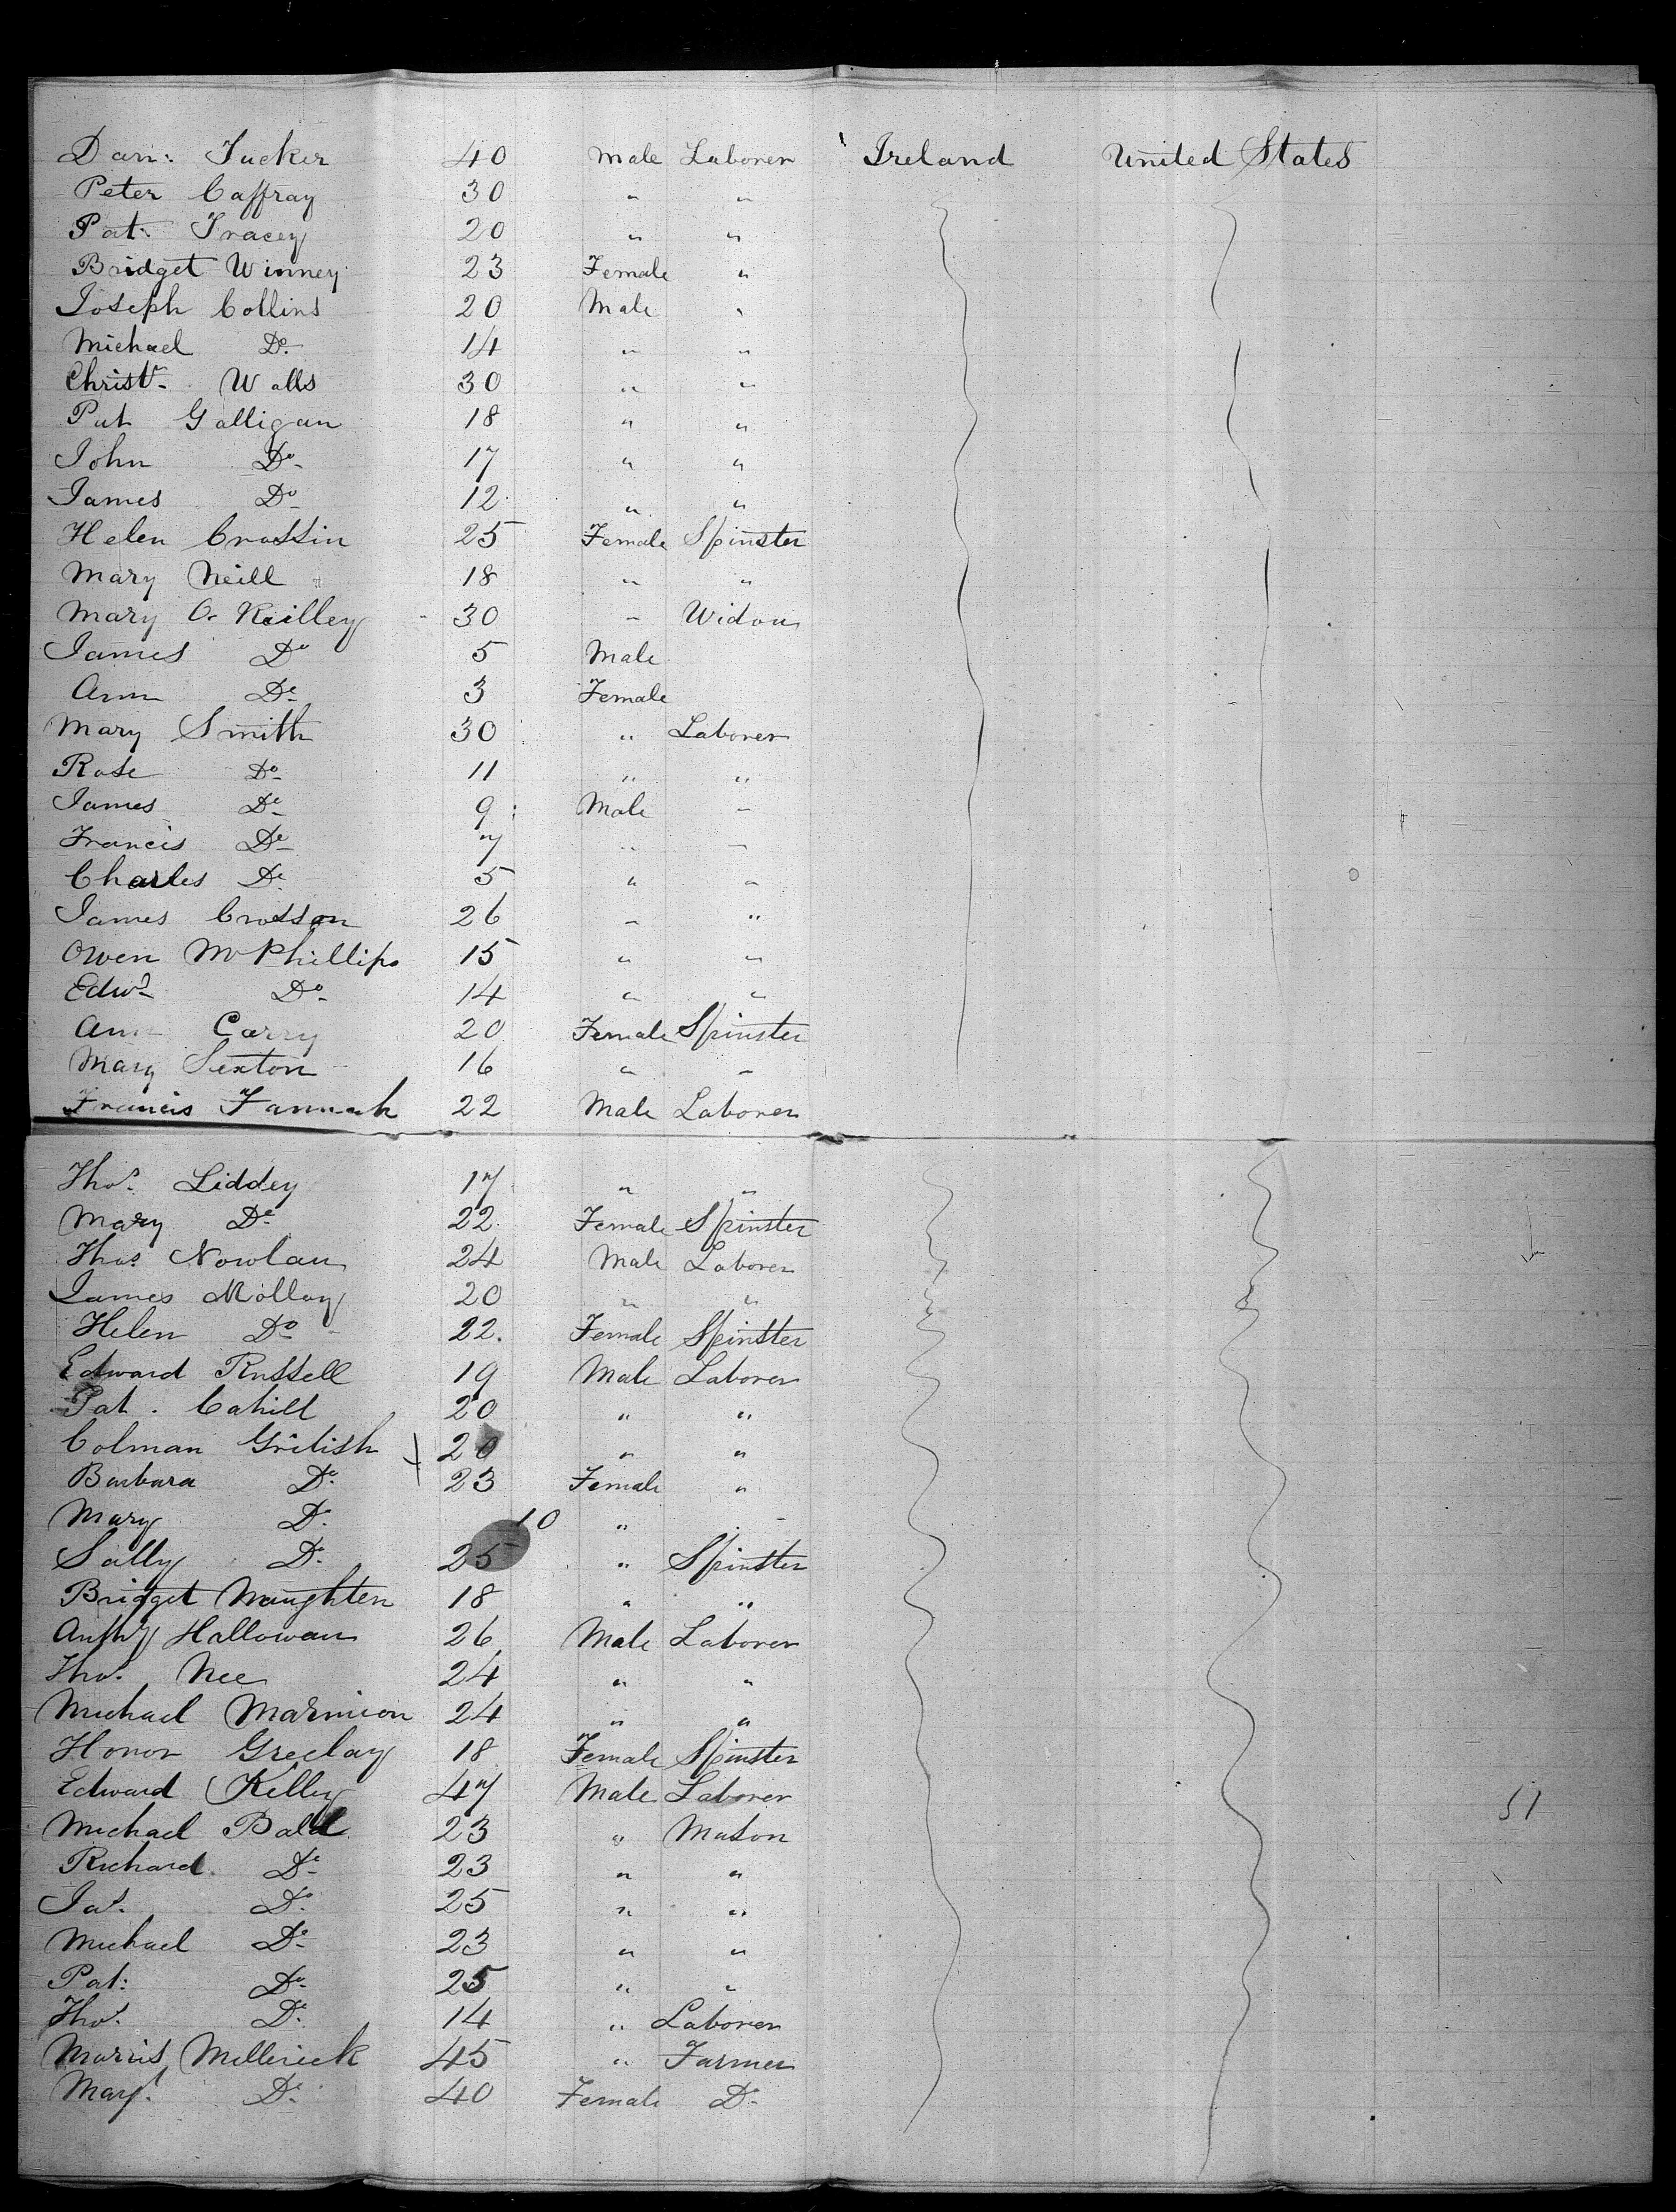 Dan: Tucker 40 Male Laborer Ireland United States
Peter Caffray 30 " "
Pat: Tracey 20 " "
Bridget Winney 23 Female "
Joseph Collins 20 Male "
Michael Do. 14 " "
Christr. Walls 30 " "
Pat Galligan 18 " "
John Do. 17 " "
James Do. 12 " "
Helen Crossin 25 Female Spinster
Mary Neill 18 " "
Mary O. Reilley 30 " Widow
James Do 5 Male
Ann Do. 3 Female
Mary Smith 30 " Laborer
Rose Do. 11 " "
James Do. 9 Male "
Francis Do. 7 " "
Charles Do. 5 " "
James Crosson 26 " "
Owen McPhillips 15 " "
Edwd. Do. 14 " "
Ann Carry 20 Female Spinster
Mary Sexton 16 " "
Francis 22 Male Laborer
Thos. Liddey 17 " "
Mary Do. 22 Female Spinster
Thos. Nowlan 24 Male Laborer
James Molloy 20 " "
Helen Do 22. Female Spinster
Edward Russell 19 Male Laborer
Pat. Cahill 20 " "
Colman Grilish 20 " "
Barbara Do. 23 Female "
Mary Do. 10 " "
Sally Do. 25 " Spinster
Bridget Naughten 18 " "
Anthy Hallowan 26 Male Laborer
Thos. Nee 24 " "
Michael Marmion 24 " "
Honor 18 Female Spinster
Edward Kelley 47 Male Laborer
Michael Bald 23 " Mason
Richard Do. 23 " "
Jas. Do. 25 " "
Michael Do. 23 " "
Pat: Do. 25 " "
Thos. Do. 14 " Laborer
Morris Mellerick 45 " Farmer
Margt. Do. 40 Female Do.
51